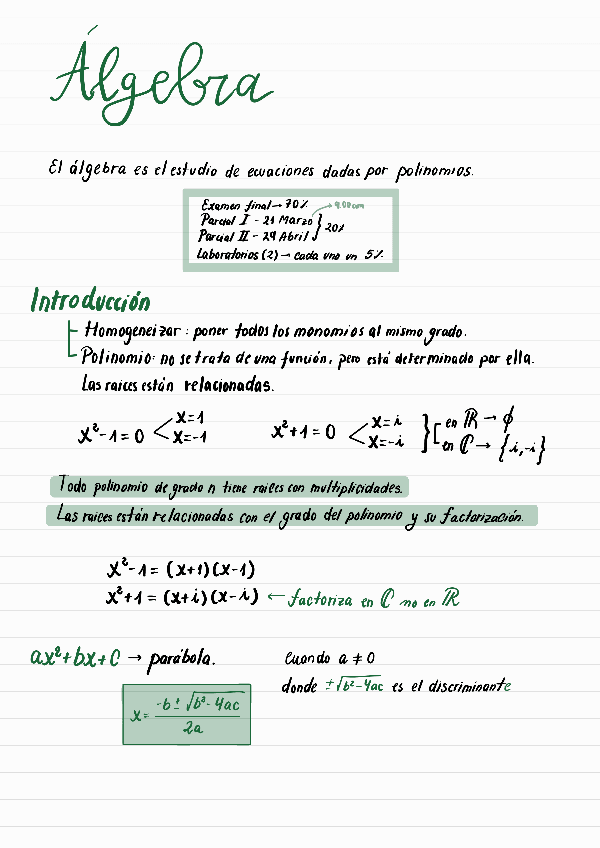 Álgebra
El álgebra es el estudio de ecuaciones dadas por polinomios.
Examen final → 70% → 9:00am
Parcial I - 21 Marzo } 20%
Parcial II - 29 Abril
Laboratorios (2) → cada uno un 5%
Introducción
Homogeneizar: poner todos los monomios al mismo grado.
Polinomio: no se trata de una función, pero está determinado por ella.
Las raíces están relacionadas.
x²-1=0 < x=1 x=-1 x²+1=0 < x=i x=-i } [ en ℝ → ϕ en ℂ → {i,-i}
Todo polinomio de grado n tiene raíces con multiplicidades.
Las raíces están relacionadas con el grado del polinomio y su factorización.
x²-1=(x+1)(x-1)
x²+1=(x+i)(x-i) ← factoriza en ℂ no en ℝ
ax²+bx+c → parábola. Cuando a ≠ 0
donde ±√b²-4ac es el discriminante
x = -b ± √b²-4ac / 2a